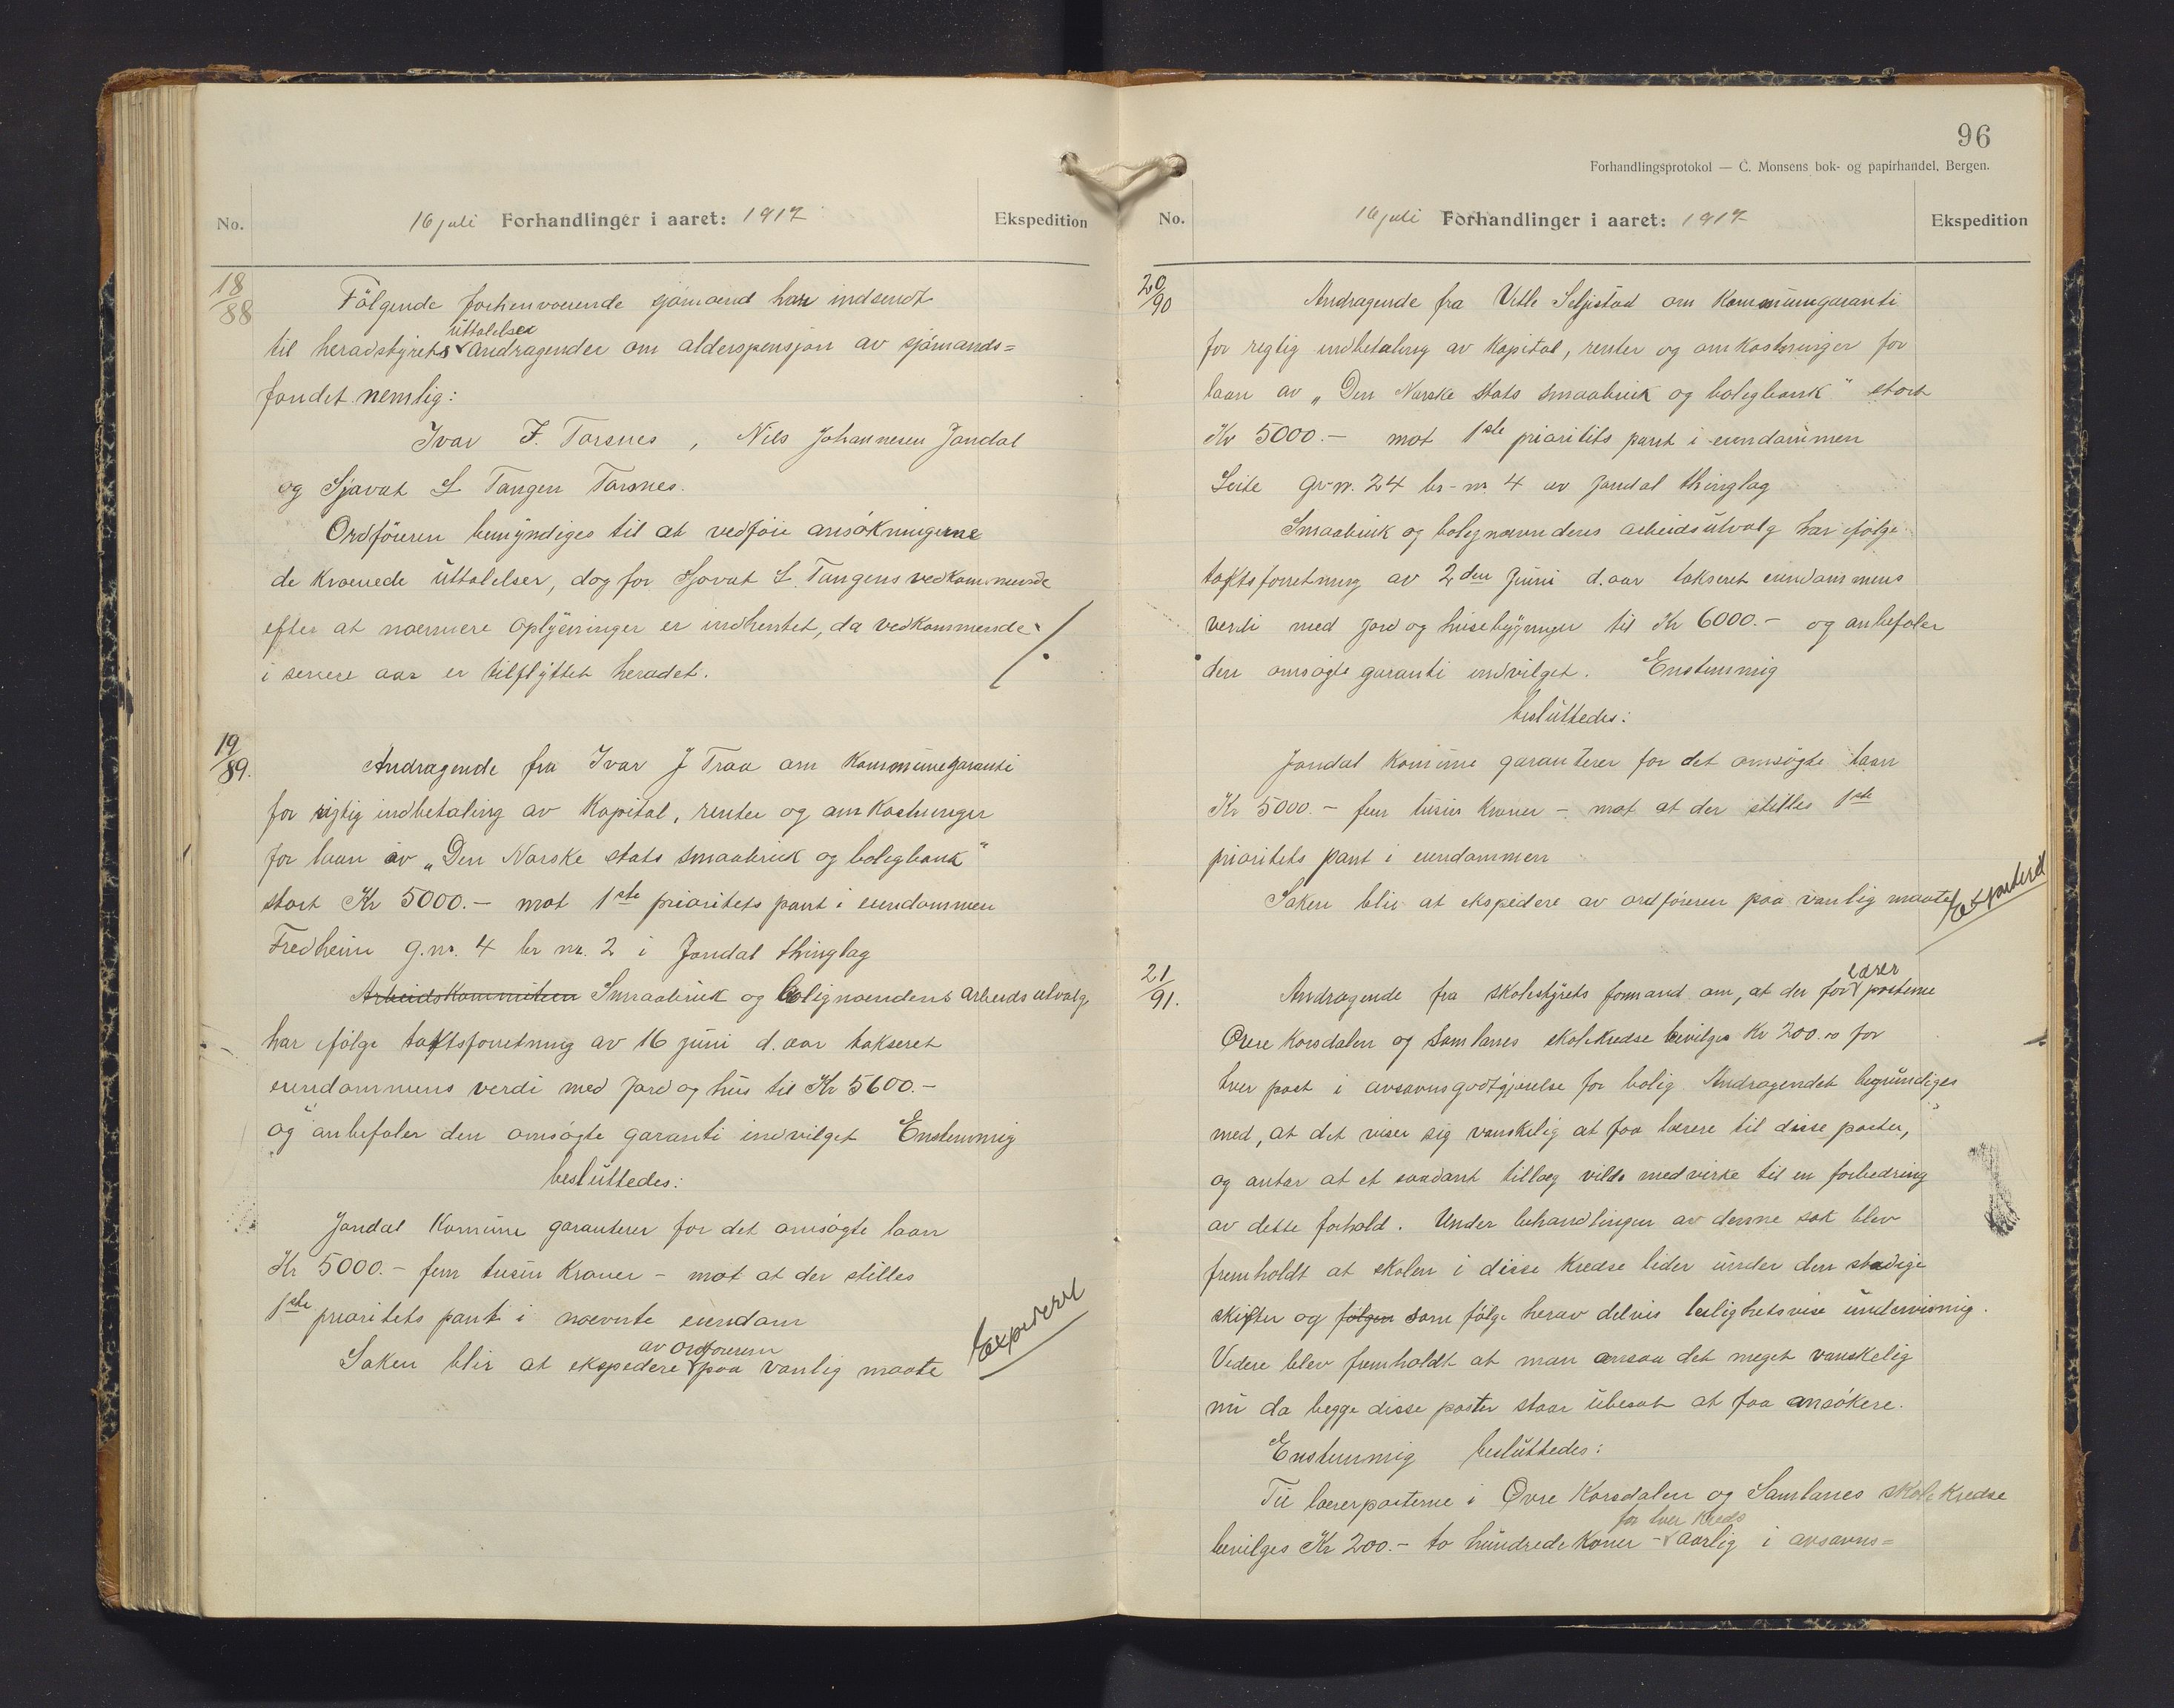 No. 16 juli Forhandlinger i aaret: 1917 Ekspedition
18/88 Følgende forhenværende sjømænd har indsendt
til heradstyrets uttalelse andragender om alderspensjon av sjømands=
fondet nemlig:
Ivar J. Torsnes, Nils Johannesen Jondal
og Sjovat L Tangen Torsnes.
Ordføreren bemyndiges til at vedføie ansøkningerne
de krævede uttalelser, dog for Sjovat L. Tangens vedkommende
efter at nærmere oplysninger er indhentet, da vedkommende
i senere aar er tilflyttet heradet. ./.
19/89. Andragende fra Ivar J Traa om Kommunegaranti
for rigtig indbetaling av Kapital, renter og omkostninger
for laan av „Den Norske stats smaabruk og boligbank"
stort Kr 5000.- mot 1ste prioritets pant i eiendommen
Fredheim g.nr. 4 br nr. 2 i Jondal thinglag
Arbeidskommiteen Smaabruk og bolignevndens arbeidsutvalg
har ifølge takstforretning av 16 juni d. aar takseret
eiendommens verdi med jord og hus til Kr 5600.-
og anbefaler den omsøgte garanti indvilget Enstemmig
besluttedes:
Jondal Komune garanterer for det omsøgte laan
Kr 5000.- fem tusin Kroner - mot at der stilles
1ste prioritets pant i nævnte eiendom
av ordføreren
Saken blir at ekspedere paa vanlig maate Expedert
96
Forhandlingsprotokol — C. Monsens bok- og papirhandel, Bergen.
No. 16 juli Forhandlinger i aaret: 1917 Ekspedition
20/90 Andragende fra Vetle Seljestad om Kommungaranti
for regtig indbetaling av Kapital, renter og omkostninger for
laan av „Den Norske stats smaabruk og boligbank" stort
Kr 5000.- mot 1ste prioritets pant i eiendommen
Leite gr-nr. 24 br-nr. 4 av Jondal thinglag
Smaabruk og bolignævndens arbeidsutvalg har ifølge
takstsforretning av 2den Juni d. aar takseret eiendommens
verdi med jord og husebygninger til Kr 6000.- og anbefaler
den omsøgte garanti indvilget. Enstemmig
besluttedes:
Jondal Komune garanterer for det omsøgte laan
Kr 5000.- fem tusin kroner - mot at der stilles 1ste
prioritets pant i eiendommen
Saken blir at ekspedere av ordføreren paa vanlig maate Expedert
21/91. Andragende fra skolestyrets formand om, at der for lærer posterne
Øvre Korsdalen og Samlanes skolekredse bevilges Kr 200.00 for
hver post i avsavnsgodtgjørelse for bolig. Andragendet begrundiges
med, at det viser sig vanskelig at faa lærere til disse poster,
og antar at et saadant tillæg vilde medvirke til en forbedring
av dette forhold. Under behandlingen av denne sak blev
fremholdt at skolen i disse Kredse lider under den stadige
skifter og følgen som følge herav delvis leilighetsvise undervisning.
Videre blev fremholdt at man ansaa det meget vanskelig
nu da begge disse poster staar ubesat at faa ansøkere.
Enstemmig besluttedes:
Til lærerposterne i Øvre Korsdalen og Samlanes skolekredse
for hver Kreds
bevilges Kr 200.- to hundrede Koner - aarlig i avsavns=